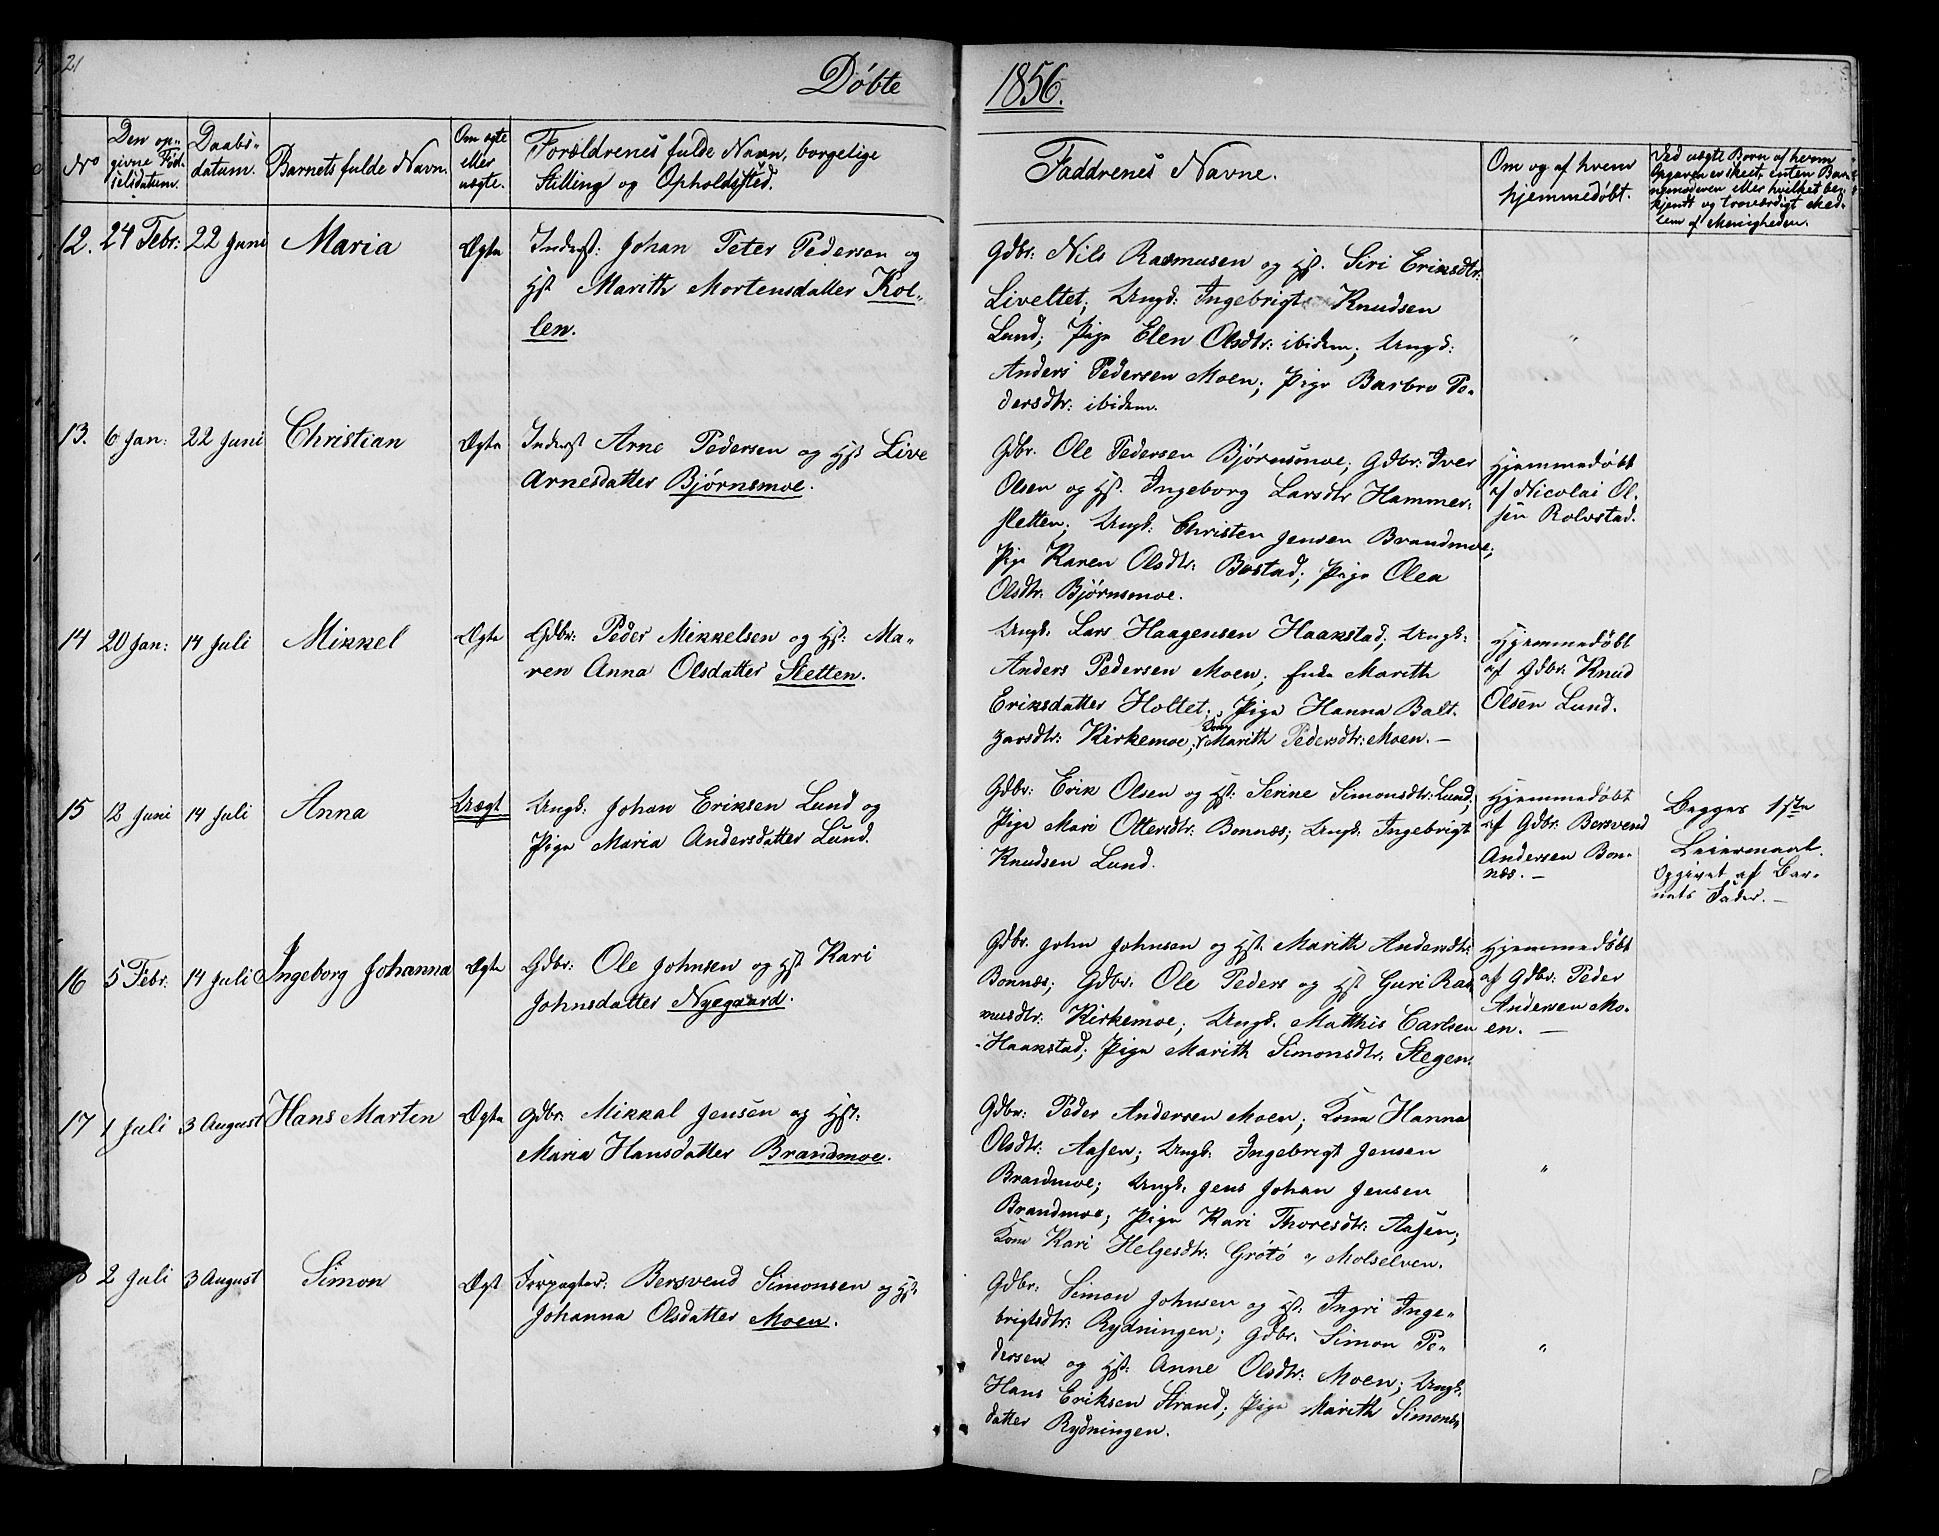 21
Døbte
1856.
No
Den op-
givne Fød-
selsdatum.
Daabs-
datum.
Barnets fulde Navn.
Om ægte
eller
uægte.
Forældrenes fulde Navn, borgelige
Stilling og Opholdssted.
Faddrenes Navne.
Om og af hvem
hjemmedøbt.
Ved uægte Børn af hvem
Opgaven er skeet, enten Bar-
nemoderen eller hvilket be-
kjendt og troværdigt Med-
lem af Menigheden.
12. 24 Febr: 22 Juni Maria Ægte
Inderst: Johan Peter Pedersen og
Hst Marith Mortensdatter Kol-
len.
Gdbr: Nils Rasmusen og Hst. Siri Eriksdtr:
Liveltet; Ungk: Ingebrigt Knudsen
Lund; Pige Elen Olsdtr: ibidem; Ungk:
Anders Pedersen Moen; Pige Barbro Pe-
dersdtr: ibidem.
"
13. 6 Jan: 22 Juni Christian Ægte
Inderst Arne Pedersen og Hst Live
Arnesdatter Bjørnsmoe.
Gdbr. Ole Pedersen Bjørnsmoe; Gdbr: Iver
Olsen og Hst. Ingeborg Larsdtr Hammer-
sletten; Ungk: Christen Jensen Brandmoe;
Pige Karen Olsdtr: Bostad; Pige Olea
Olsdtr: Bjørnsmoe.
Hjemmedøbt
af Nicolai Ol-
sen Rolvstad.
14 20 Jan: 14 Juli Mikkel Ægte
Gdbr: Peder Mikkelsen og Hst: Ma-
ren Anna Olsdatter Sletten.
Ungk: Lars Haagensen Haakstad; Ungk:
Anders Pedersen Moen; Enke Marith
Eriksdatter Holtet; Pige Hanna Balt-
zarsdtr: Kirkemoe; Kone Marith Pedersdtr: Moen. —
Hjemmedøbt
af Gdbr: Knud
Olsen Lund.
15 12 Juni 14 Juli Anna Uægt
Ungk: Johan Eriksen Lund og
Pige Maria Andersdatter Lund.
Gdbr: Erik Olsen og Hst: Serine Simonsdtr: Lund;
Pige Mari Ottersdtr: Bonnæs; Ungk: Ingebrigt
Knudsen Lund.
Hjemmedøbt
af Gdbr: Bersvend
Andersen Bon-
næs. —
Begges 1ste
Leiermaal.
Opgivet af Bar-
nets Fader. —
16 5 Febr: 14 Juli Ingeborg Johanna Ægte
Gdbr: Ole Johnsen og Hst Kari
Johnsdatter Nyegaard.
Gdbr. John Johnsen og Hst. Marith Andersdtr:
Bonnæs; Gdbr: Ole Peders og Hst Guri Ras-
musdtr: Kirkemoe; Ungk. Matthis Carlsen
Haakstad; Pige Marith Simonsdtr: Stegen.
Hjemmedøbt
af Gdbr: Peder
Andersen Mo-
en. —
17 1 Juli 3 August Hans Marten Ægte
Gdbr: Mikkal Jensen og Hst:
Maria Hansdatter Brandmoe.
Gdbr: Peder Andersen Moen; Kone Hanna
Olsdtr: Aasen; Ungk: Ingebrigt Jensen
Brandmoe; Ungk. Jens Johan Jensen
Brandmoe; Pige Kari Thoresdtr: Aasen;
Kone Kari Helgesdtr: Grøtø Molselven.
"
8 2 Juli 3 August Simon Ægt
Forpagter: Bersvend Simonsen og Hst:
Johanna Olsdatter Moen.
Gdbr: Simon Johnsen og Hst: Ingri Inge-
brigtsdtr: Rydningen; Gdbr. Simon Pe-
dersen og Hst: Anne Olsdtr: Moen; Ungk:
Hans Eriksen Strand; Pige Marith Simons-
datter Rydningen.
"